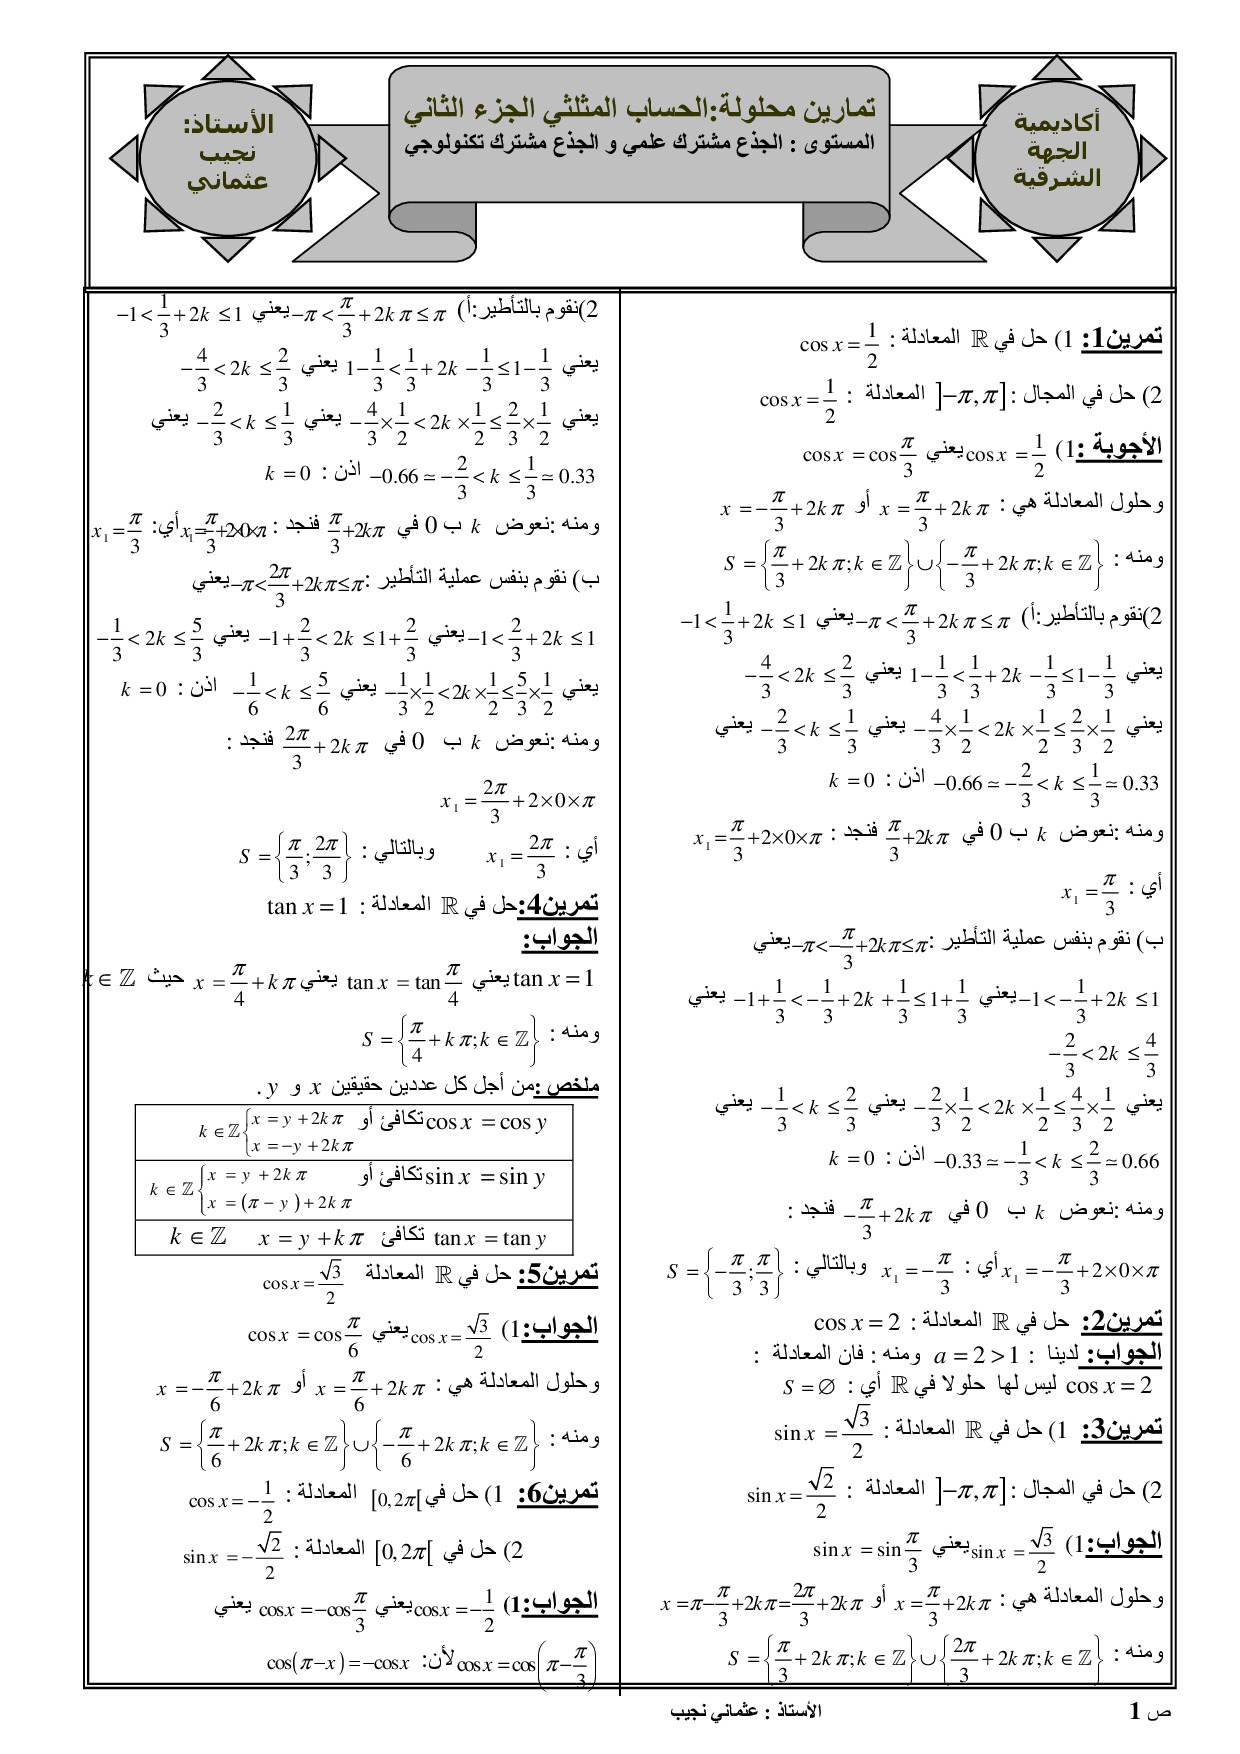 أكاديمية
الجهة
الشرقية
تمارين محلولة:الحساب المثلثي الجزء الثاني
المستوى : الجذع مشترك علمي و الجذع مشترك تكنولوجي
الأستاذ:
نجيب
عثماني
تمرين1: 1) حل في ℝ المعادلة : cos x = 1/2
2) حل في المجال : ]−π,π] المعادلة : cos x = 1/2
الأجوبة :1) cos x = 1/2 يعني cos x = cos π/3
وحلول المعادلة هي : x = π/3 + 2kπ أو x = −π/3 + 2kπ
ومنه : S = {π/3 + 2kπ; k ∈ ℤ} ∪ {−π/3 + 2kπ; k ∈ ℤ}
2)نقوم بالتأطير:أ) −π < π/3 + 2kπ ≤ π يعني −1 < 1/3 + 2k ≤ 1
يعني 1 − 1/3 < 1/3 + 2k − 1/3 ≤ 1 − 1/3 يعني −4/3 < 2k ≤ 2/3
يعني −4/3 × 1/2 < 2k × 1/2 ≤ 2/3 × 1/2 يعني −2/3 < k ≤ 1/3 يعني
−0.66 ≃ −2/3 < k ≤ 1/3 ≃ 0.33 اذن : k = 0
ومنه :نعوض k ب 0 في π/3 + 2kπ فنجد : x₁ = π/3 + 2×0×π
أي : x₁ = π/3
ب) نقوم بنفس عملية التأطير : −π < −π/3 + 2kπ ≤ π يعني
−1 < −1/3 + 2k ≤ 1 يعني −1 + 1/3 < −1/3 + 2k + 1/3 ≤ 1 + 1/3 يعني
−2/3 < 2k ≤ 4/3
يعني −2/3 × 1/2 < 2k × 1/2 ≤ 4/3 × 1/2 يعني −1/3 < k ≤ 2/3 يعني
−0.33 ≃ −1/3 < k ≤ 2/3 ≃ 0.66 اذن : k = 0
ومنه :نعوض k ب 0 في −π/3 + 2kπ فنجد :
x₁ = −π/3 + 2×0×π أي : x₁ = −π/3 وبالتالي : S = {−π/3; π/3}
تمرين2: حل في ℝ المعادلة : cos x = 2
الجواب: لدينا : a = 2 > 1 ومنه : فان المعادلة :
cos x = 2 ليس لها حلولا في ℝ أي : S = ∅
تمرين3: 1) حل في ℝ المعادلة : sin x = √3/2
2) حل في المجال : ]−π,π] المعادلة : sin x = √2/2
الجواب:1) sin x = √3/2 يعني sin x = sin π/3
وحلول المعادلة هي : x = π/3 + 2kπ أو x = π − π/3 + 2kπ = 2π/3 + 2kπ
ومنه : S = {π/3 + 2kπ; k ∈ ℤ} ∪ {2π/3 + 2kπ; k ∈ ℤ}
2)نقوم بالتأطير:أ) −π < π/3 + 2kπ ≤ π يعني −1 < 1/3 + 2k ≤ 1
يعني 1 − 1/3 < 1/3 + 2k − 1/3 ≤ 1 − 1/3 يعني −4/3 < 2k ≤ 2/3
يعني −4/3 × 1/2 < 2k × 1/2 ≤ 2/3 × 1/2 يعني −2/3 < k ≤ 1/3 يعني
−0.66 ≃ −2/3 < k ≤ 1/3 ≃ 0.33 اذن : k = 0
ومنه :نعوض k ب 0 في π/3 + 2kπ فنجد : x₁ = π/3 + 2×0×π أي: x₁ = π/3
ب) نقوم بنفس عملية التأطير : −π < 2π/3 + 2kπ ≤ π يعني
−1 < 2/3 + 2k ≤ 1 يعني −1 + 2/3 < 2k ≤ 1 + 2/3 يعني −1/3 < 2k ≤ 5/3
يعني −1/3 × 1/2 < 2k × 1/2 ≤ 5/3 × 1/2 يعني −1/6 < k ≤ 5/6 اذن : k = 0
ومنه :نعوض k ب 0 في 2π/3 + 2kπ فنجد :
x₁ = 2π/3 + 2×0×π
أي : x₁ = 2π/3 وبالتالي : S = {π/3; 2π/3}
تمرين4:حل في ℝ المعادلة : tan x = 1
الجواب:
tan x = 1 يعني tan x = tan π/4 يعني x = π/4 + kπ حيث k ∈ ℤ
ومنه : S = {π/4 + kπ; k ∈ ℤ}
ملخص :من أجل كل عددين حقيقين x و y .
cos x = cos y تكافئ أو k ∈ ℤ { x = y + 2kπ
x = −y + 2kπ
sin x = sin y تكافئ أو k ∈ ℤ { x = y + 2kπ
x = (π − y) + 2kπ
tan x = tan y تكافئ x = y + kπ k ∈ ℤ
تمرين5: حل في ℝ المعادلة cos x = √3/2
الجواب:1) cos x = √3/2 يعني cos x = cos π/6
وحلول المعادلة هي : x = π/6 + 2kπ أو x = −π/6 + 2kπ
ومنه : S = {π/6 + 2kπ; k ∈ ℤ} ∪ {−π/6 + 2kπ; k ∈ ℤ}
تمرين6: 1) حل في [0,2π[ المعادلة : cos x = −1/2
2) حل في [0,2π[ المعادلة : sin x = −√2/2
الجواب:1) cos x = −1/2 يعني cos x = −cos π/3 يعني
cos x = cos(π − π/3) لأن: cos(π − x) = −cos x
ص 1
الأستاذ : عثماني نجيب